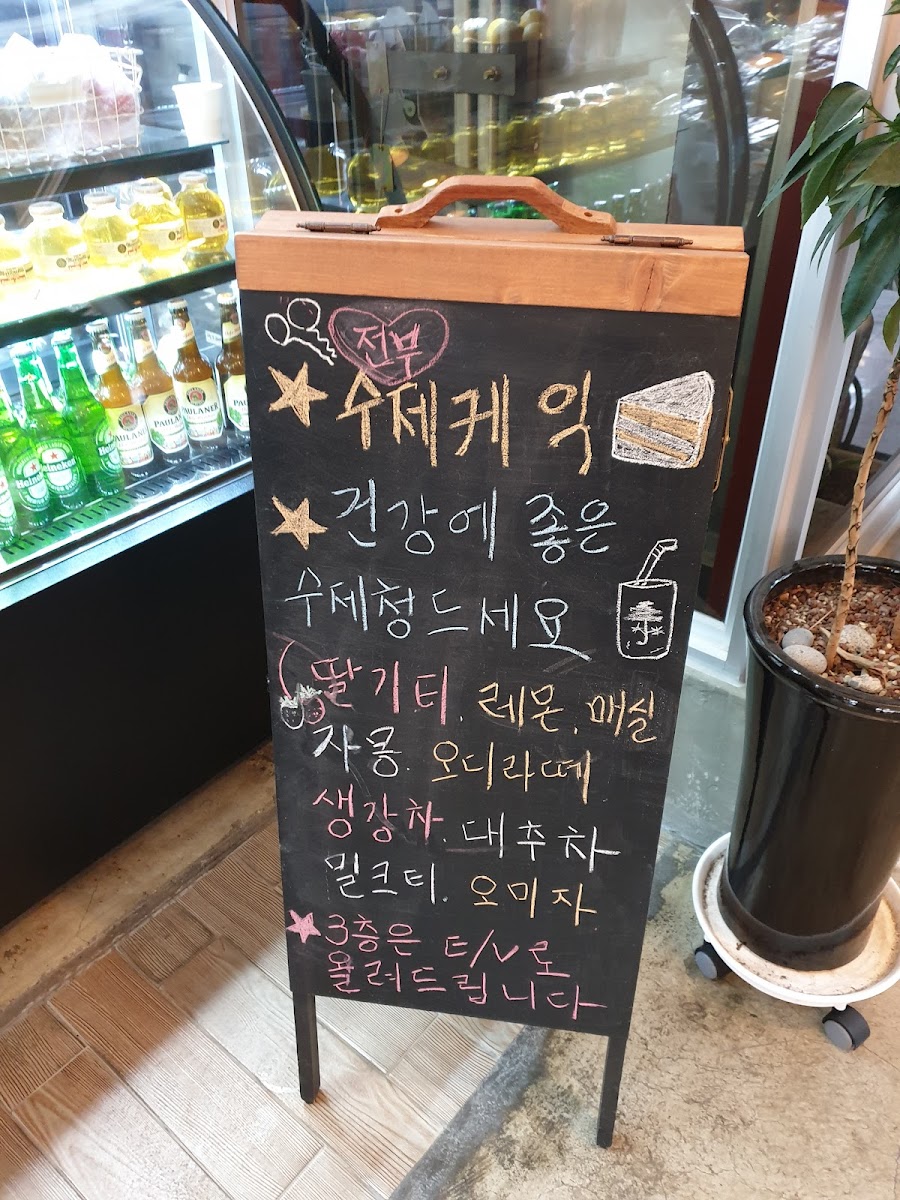 전부
수제케익
건강에 좋은
수제청드세요
딸기티. 레몬. 매실
자몽. 오디라떼
생강차. 대추차
밀크티. 오미자
3층은 E/V로
올려드립니다
Heineken
Heineken
PAULANER
PAULANER
PAULANER